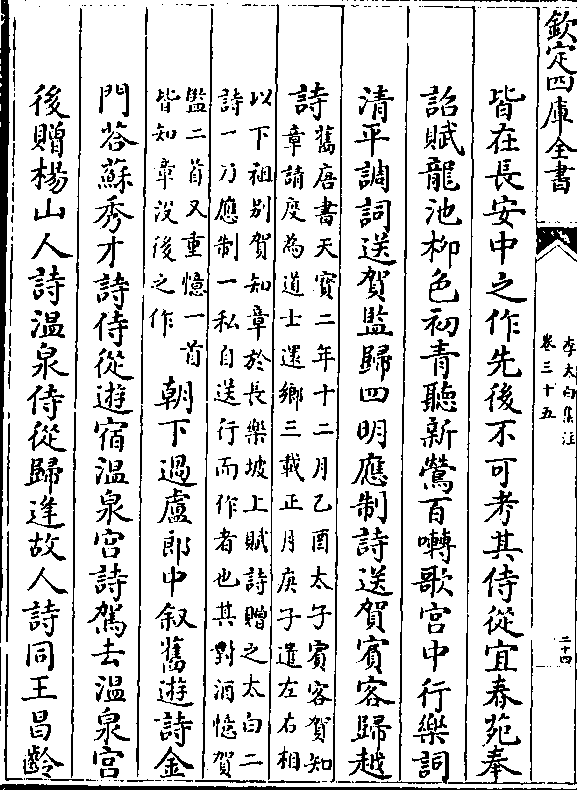 欽定四庫全書
李太白集注
卷三十五
二十四
皆在長安中之作先後不可考其侍從宜春苑奉
詔賦龍池柳色初青聽新鶯百囀歌宮中行樂詞
清平調詞送賀監歸四明應制詩送賀賓客歸越
詩舊唐書天寶二年十二月乙酉太子賓客賀知
章請度為道士還鄉三載正月庚子遣左右相
以下祖别賀知章於長樂坡上賦詩贈之太白二
詩一乃應制一私自送行而作者也其對酒憶賀
監二首又重憶一首
皆知章沒後之作
朝下過盧郎中叙舊遊詩金
門荅蘇秀才詩侍從遊宿温泉宮詩駕去温泉宮
後贈楊山人詩温泉侍從歸逢故人詩同王昌齡